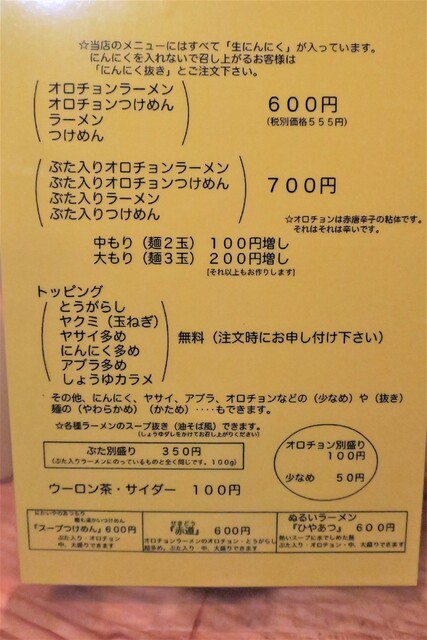 ☆当店のメニューにはすべて「生にんにく」が入っています。
にんにくを入れないで召し上がるお客様は
「にんにく抜き」とご注文下さい。
オロチョンラーメン
オロチョンつけめん
ラーメン
つけめん
600円
(税別価格555円)
ぶた入りオロチョンラーメン
ぶた入りオロチョンつけめん
ぶた入りラーメン
ぶた入りつけめん
700円
☆オロチョンは赤唐辛子の粘体です。
それはそれは辛いです。
中もり(麺2玉) 100円増し
大もり(麺3玉) 200円増し
[それ以上もお作りします]
トッピング
とうがらし
ヤクミ(玉ねぎ)
ヤサイ多め
にんにく多め
アブラ多め
しょうゆカラメ
無料(注文時にお申し付け下さい)
その他、にんにく、ヤサイ、アブラ、オロチョンなどの(少なめ)や(抜き)
麺の(やわらかめ)(かため)‥‥もできます。
☆各種ラーメンのスープ抜き(油そば風)できます。
(しょうゆダレをかけてお召し上がりください)
ぶた別盛り 350円
(ぶた入りラーメンにのっているものと全く同じです。100g)
オロチョン別盛り
100円
少なめ 50円
ウーロン茶・サイダー 100円
麺も温かいつけめん
『スープつけめん』600円
ぶた入り・オロチョン
中、大盛りできます
『赤道』 600円
オロチョンラーメンのオロチョン・とうがらし
超多め。ぶた入り・中、大盛りできます
ぬるいラーメン
『ひやあつ』 600円
熱いスープに水でしめた麺
ぶた入り・オロチョン・中、大盛りできます